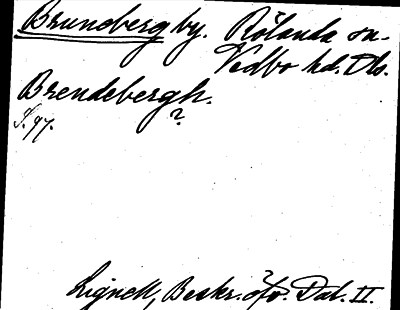 Brundberg by. Rölanda sn.
Vedbo hd. Dls.
Brendebergh.
?
S. 97.
Lignell, Beskr. öfv. Dal. II.